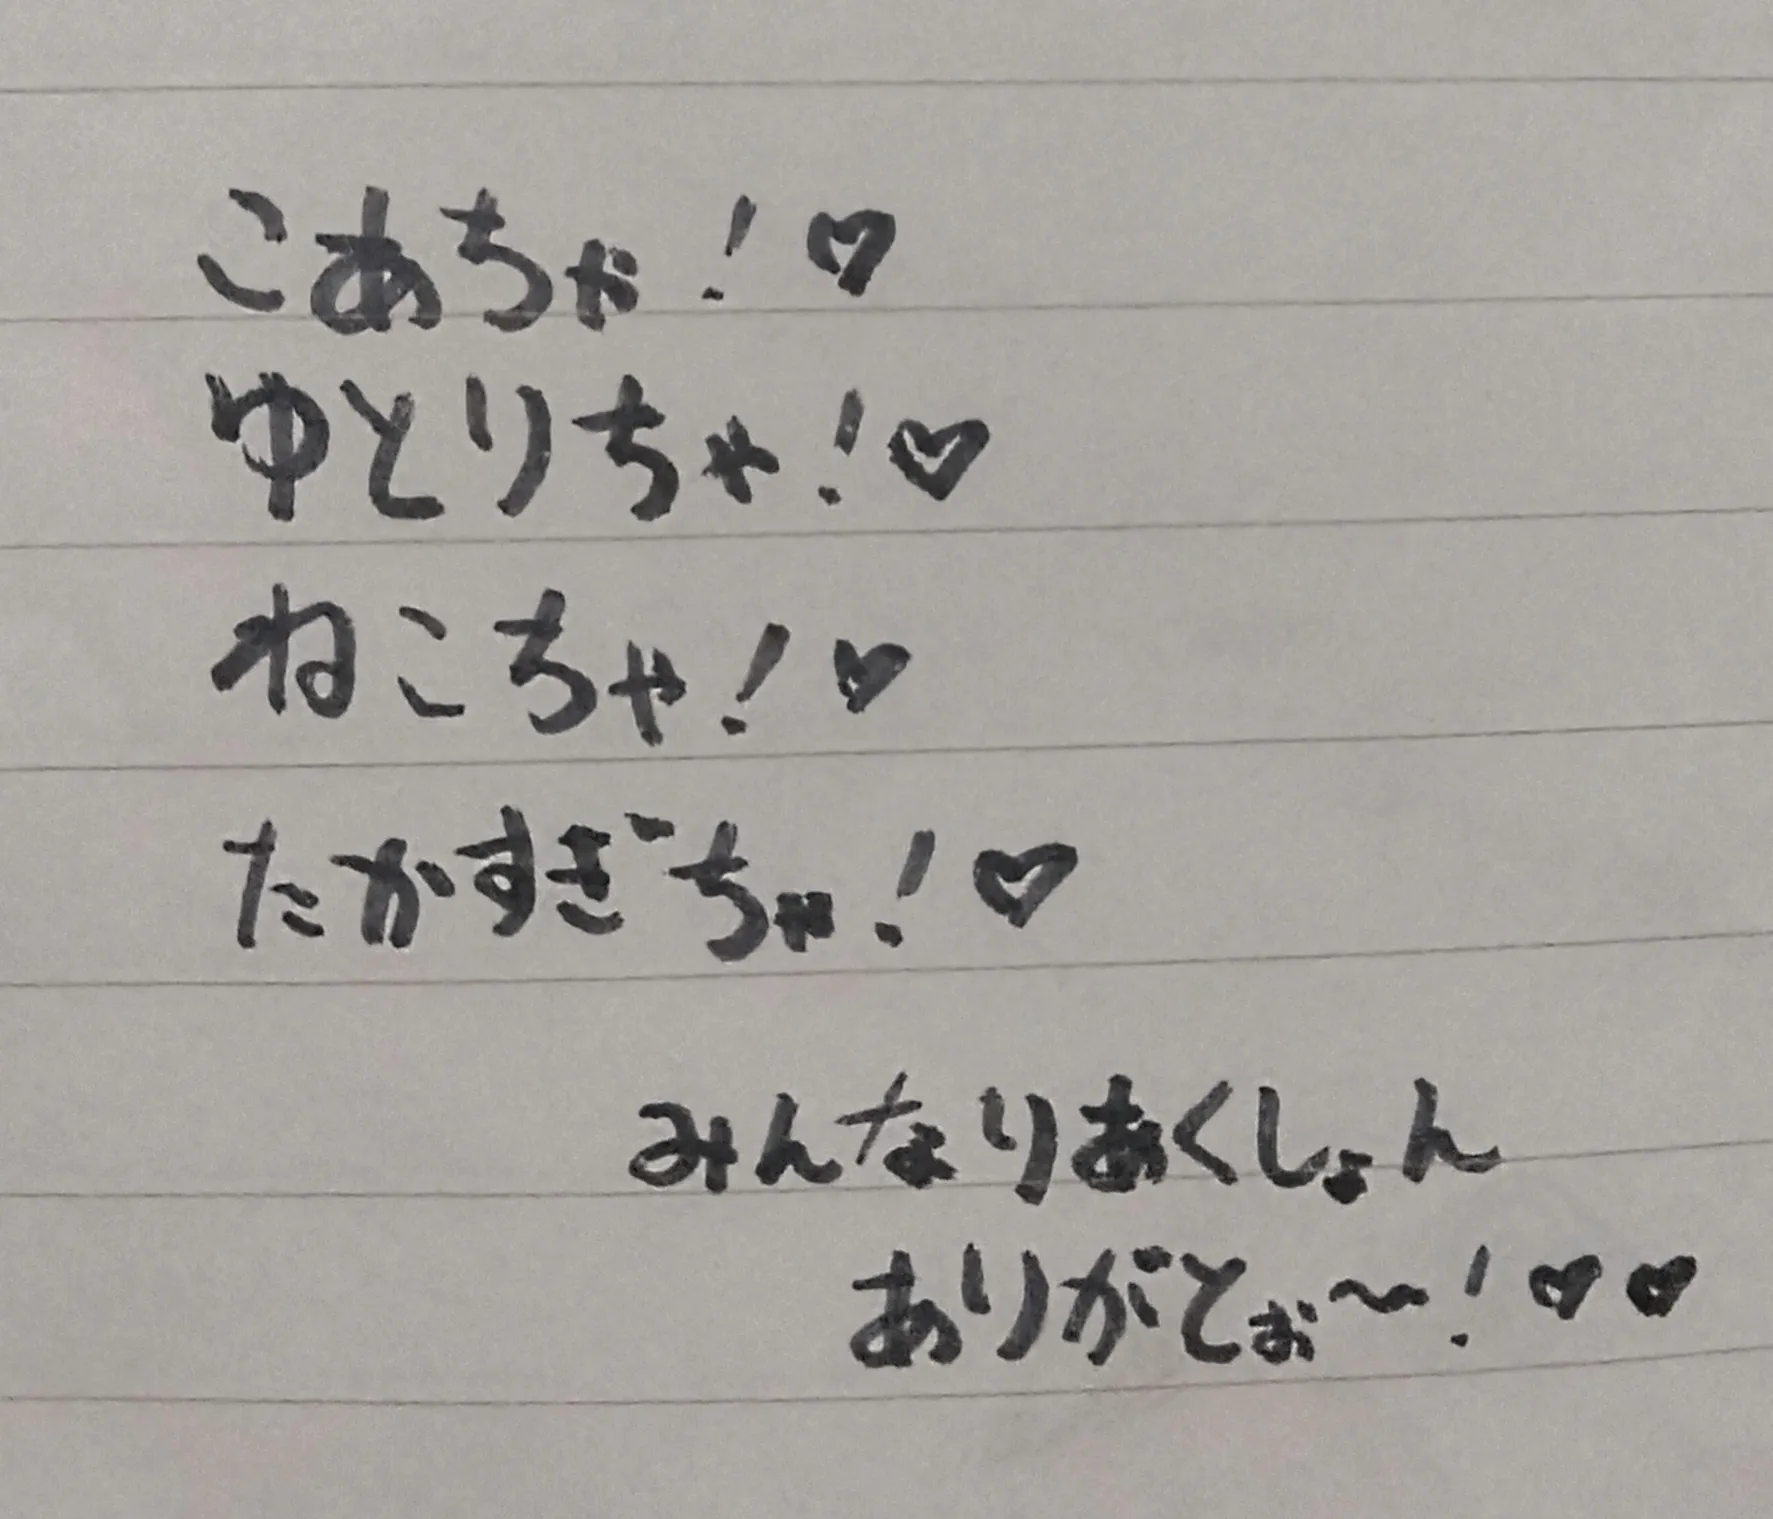 こあちゃ!♡
ゆとりちゃ!♡
ねこちゃ!♡
たかすぎちゃ!♡
みんなりあくしょん
ありがとぉ〜!♡♡